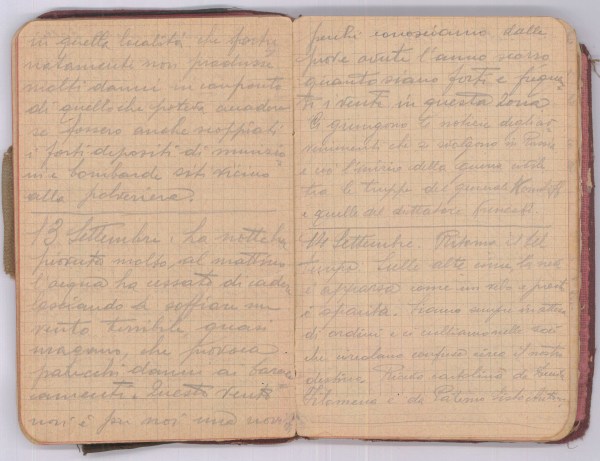 in quella località che fortu
natamente non produsse
molti danni in confronto
di quello che poteva accadere
se fossero anche scoppiati
i forti depositi di munizio
ni e bombarde siti vicino
alla polveriera.
13 Settembre. La notte ha
piovuto molto, al mattino
l'acqua ha cessato di cadere
lasciando di soffiare un
vento terribile, quasi
uragano, che provoca
parecchi danni ai barac
camenti. Questo vento
non è per noi una novità
perchè conosciamo dalle
prove avute l'anno scorso
quanto siano forti e frequen
ti i venti in questa zona
Ci giungono le notizie degli av
venimenti che si svolgono in Russia
e cioè l'inizio della guerra civile
tra le truppe del general Korniloff
e quelle del dittatore Kerenski.
14 Settembre. Ritorna il bel
tempo. Sulle alte cime la neve
è apparsa come un
è sparita. Siamo sempre in attesa
di ordini e ci culliamo nelle voci
che circolano confuse circa il nostro
destino. Ricevo cartolina di
Filomena e da Palermo